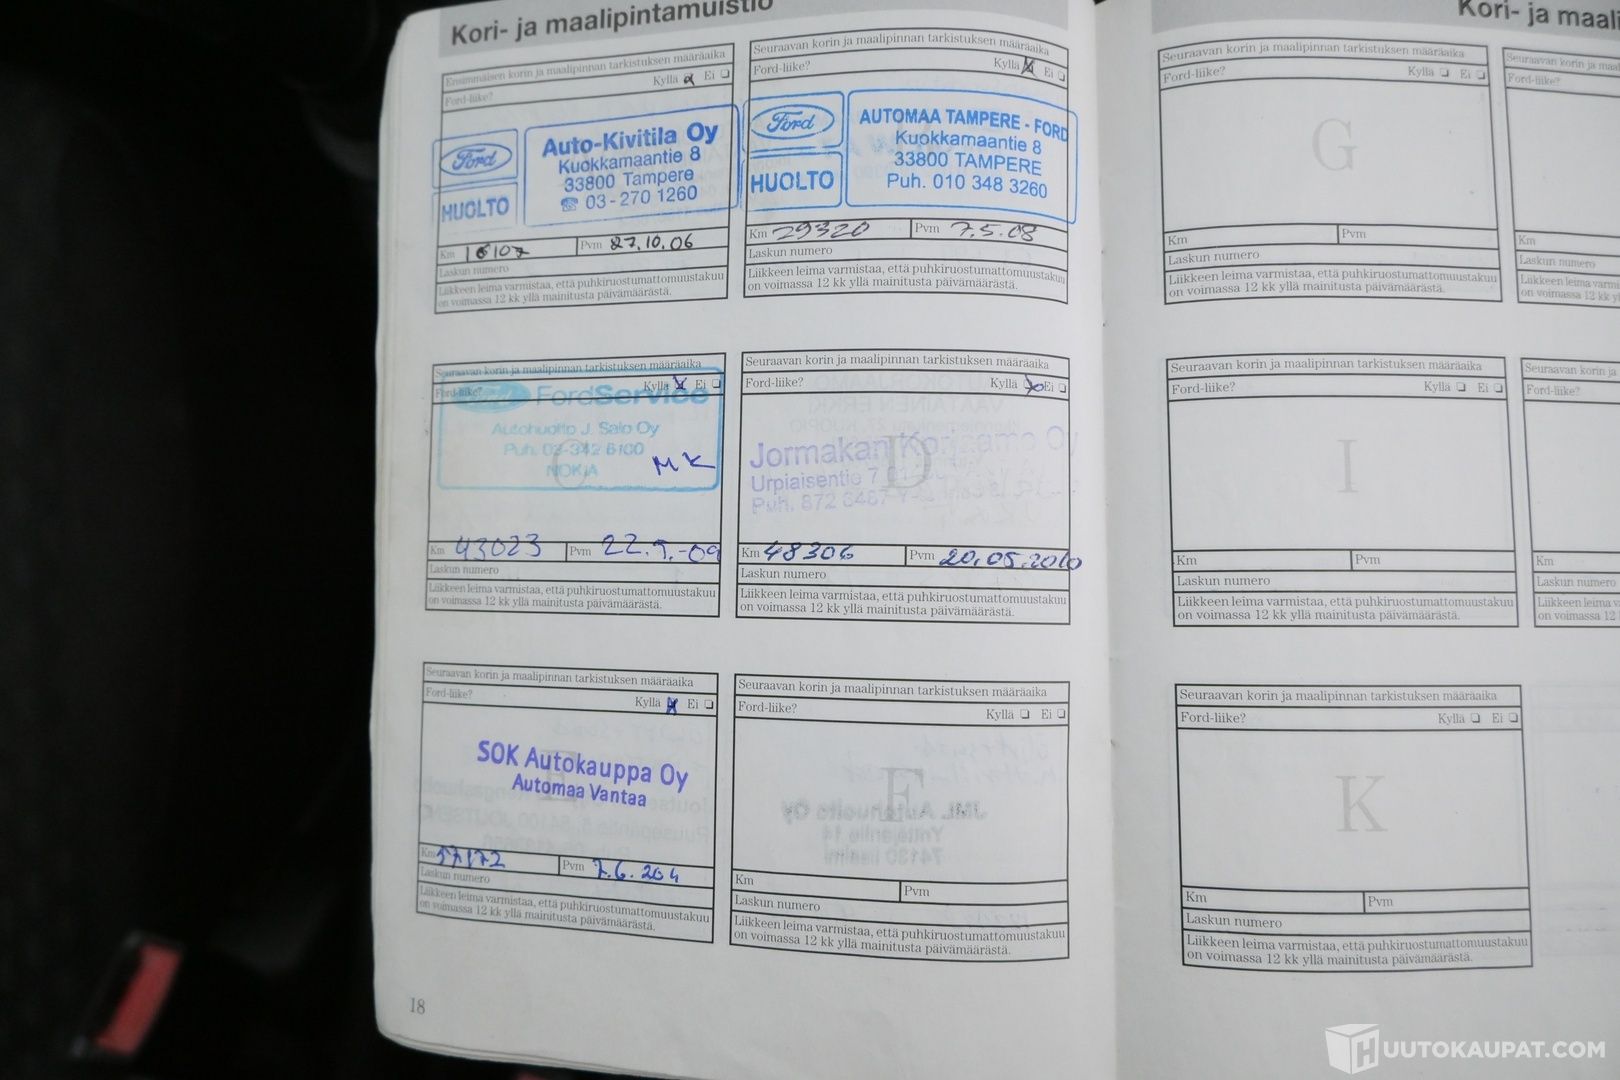 Kori- ja maalipintamuistio
Ensimmäisen korin ja maalipinnan tarkistuksen määräaika
Ford-liike?
Kyllä Ei
Ford
HUOLTO
Auto-Kivitila Oy
Kuokkamaantie 8
33800 Tampere
☎ 03-270 1260
Km 16107 Pvm 27.10.06
Laskun numero
Liikkeen leima varmistaa, että puhkiruostumattomuustakuu
on voimassa 12 kk yllä mainitusta päivämäärästä.
Seuraavan korin ja maalipinnan tarkistuksen määräaika
Ford-liike? Kyllä Ei
Ford
HUOLTO
AUTOMAA TAMPERE - FORD
Kuokkamaantie 8
33800 TAMPERE
Puh. 010 348 3260
Km 29320 Pvm 7.5.08
Laskun numero
Liikkeen leima varmistaa, että puhkiruostumattomuustakuu
on voimassa 12 kk yllä mainitusta päivämäärästä.
Seuraavan korin ja maalipinnan tarkistuksen määräaika
Ford-liike? Kyllä Ei
FordService
Autohuolto J. Salo Oy
Puh. 03-342 6100
NOKIA
MK
C
Km 43023 Pvm 22.5.-09
Laskun numero
Liikkeen leima varmistaa, että puhkiruostumattomuustakuu
on voimassa 12 kk yllä mainitusta päivämäärästä.
Seuraavan korin ja maalipinnan tarkistuksen määräaika
Ford-liike? Kyllä Ei
D
Jormakan Korjaamo Oy
Urpiaisentie 7
Puh. 872 3487
Km 48306 Pvm 20.05.2010
Laskun numero
Liikkeen leima varmistaa, että puhkiruostumattomuustakuu
on voimassa 12 kk yllä mainitusta päivämäärästä.
Seuraavan korin ja maalipinnan tarkistuksen määräaika
Ford-liike?
Kyllä Ei
E
SOK Autokauppa Oy
Automaa Vantaa
Km 57172 Pvm 7.6.2011
Laskun numero
Liikkeen leima varmistaa, että puhkiruostumattomuustakuu
on voimassa 12 kk yllä mainitusta päivämäärästä.
Seuraavan korin ja maalipinnan tarkistuksen määräaika
Ford-liike? Kyllä Ei
F
Km Pvm
Laskun numero
Liikkeen leima varmistaa, että puhkiruostumattomuustakuu
on voimassa 12 kk yllä mainitusta päivämäärästä.
18
Kori- ja maali
Seuraavan korin ja maalipinnan tarkistuksen määräaika
Ford-liike? Kyllä Ei
G
Km Pvm
Laskun numero
Liikkeen leima varmistaa, että puhkiruostumattomuustakuu
on voimassa 12 kk yllä mainitusta päivämäärästä.
Seuraavan korin ja maa
Ford-liike?
Km
Laskun numero
Liikkeen leima varmi
on voimassa 12 kk yl
Seuraavan korin ja maalipinnan tarkistuksen määräaika
Ford-liike? Kyllä Ei
I
Km Pvm
Laskun numero
Liikkeen leima varmistaa, että puhkiruostumattomuustakuu
on voimassa 12 kk yllä mainitusta päivämäärästä.
Seuraavan korin ja
Ford-liike?
Km
Laskun numero
Liikkeen leima v
on voimassa 12
Seuraavan korin ja maalipinnan tarkistuksen määräaika
Ford-liike? Kyllä Ei
K
Km Pvm
Laskun numero
Liikkeen leima varmistaa, että puhkiruostumattomuustakuu
on voimassa 12 kk yllä mainitusta päivämäärästä.
HUUTOKAUPAT.COM